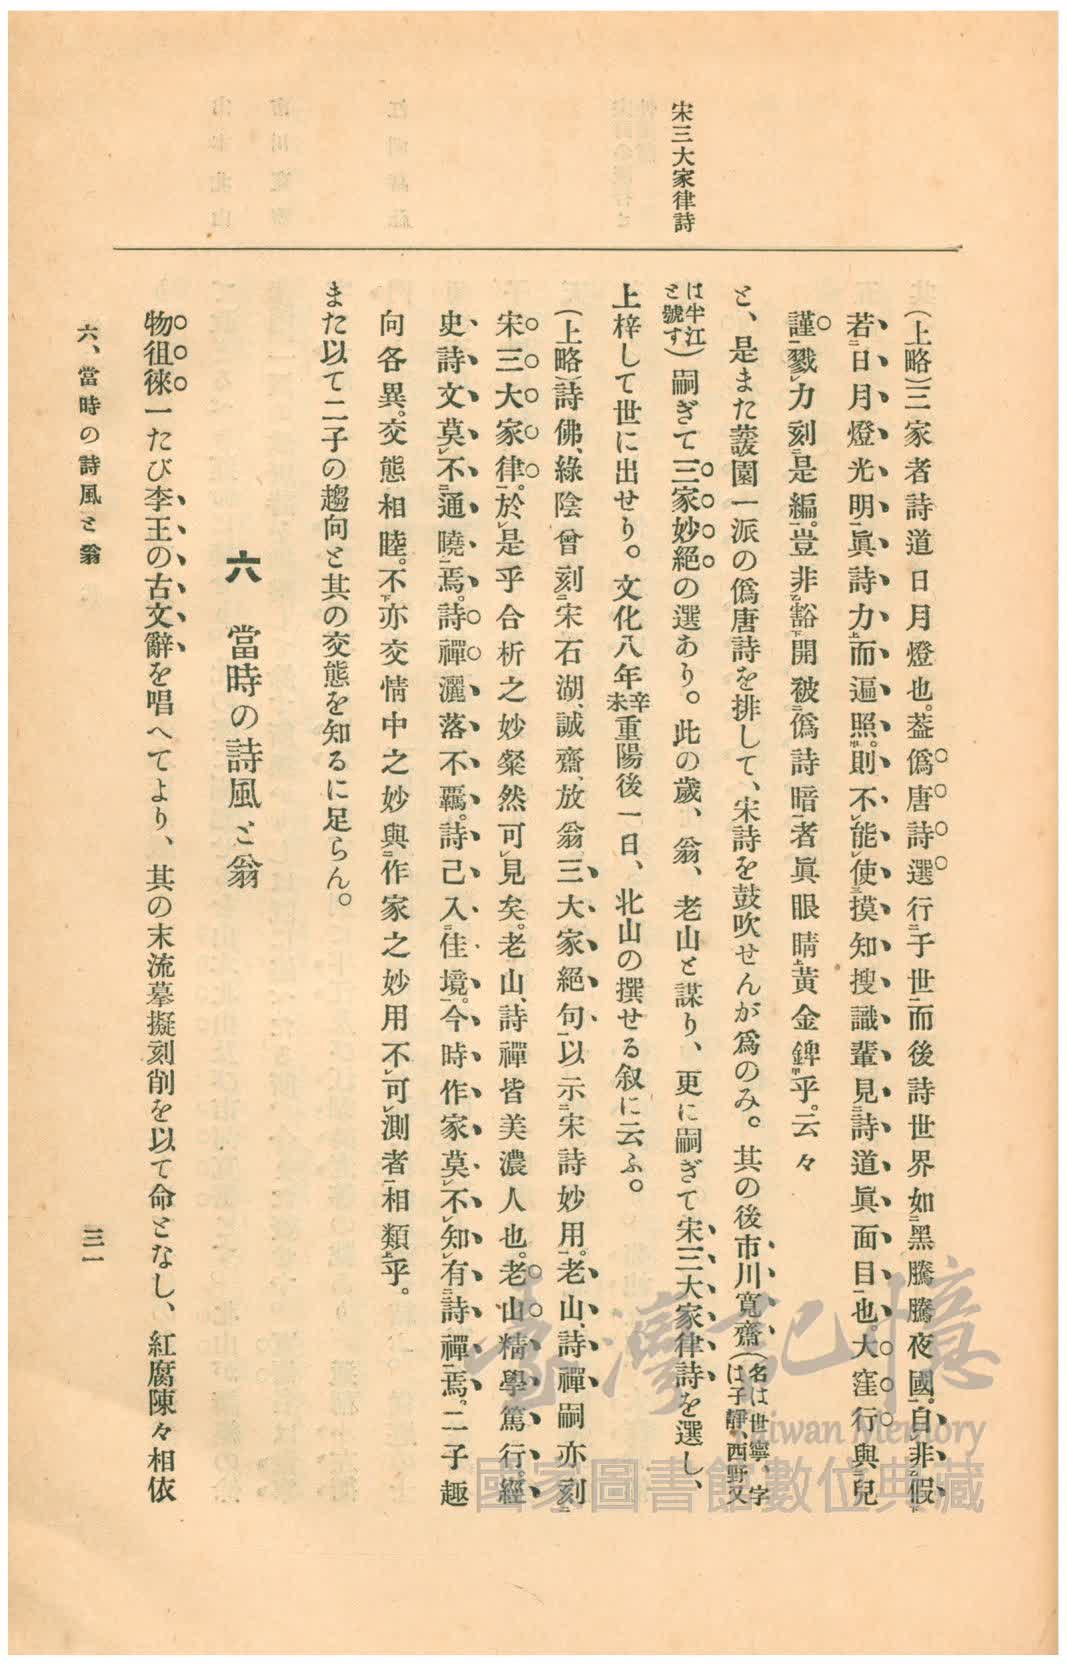 宋三大家律詩
(上略)三家者詩道日月燈也。葢僞唐詩選行二于世一而後詩世界如二黑騰騰夜國一。自非下假
若二日月燈光明一眞詩力上而遍照甲。則不レ能レ使三摸知搜識輩見二詩道眞面目一也。大窪行與兒
謹一戮レ力刻二是編一。豈非乙豁下開被二僞詩暗一者眞眼睛上黃金錍甲乎。云々
と、是また蘐園一派の僞唐詩を排して、宋詩を鼓吹せんが爲のみ。其の後市川寬齋(名は世寧、字は子靜、西野又
は半江と號す)嗣ぎて三家妙絕の選あり。此の歲、翁、老山と謀り、更に嗣ぎて宋三大家律詩を選し、
上梓して世に出せり。文化八年辛未重陽後一日、北山の撰せる叙に云ふ。
(上略)詩佛、綠陰曾刻二宋石湖、誠齋、放翁三大家絕句一以示二宋詩妙用一。老山、詩禪嗣亦刻二
宋三大家律一。於レ是乎合析之妙粲然可レ見矣。老山、詩禪皆美濃人也。老山精學篤行。經
史詩文莫レ不二通曉一焉。詩禪灑落不羈。詩已入二佳境一。今時作家莫レ不レ知レ有二詩禪一焉。二子趣
向各異。交態相睦。不下亦交情中之妙與二作家之妙用不レ可レ測者一相類上乎。
また以て二子の趨向と其の交態を知るに足らん。
六　當時の詩風と翁
物徂徠一たび李王の古文辭を唱へてより、其の末流摹擬刻削を以て命となし、紅腐陳々相依
六、當時の詩風と翁
三一
臺灣記憶
Taiwan Memory
國家圖書館數位典藏